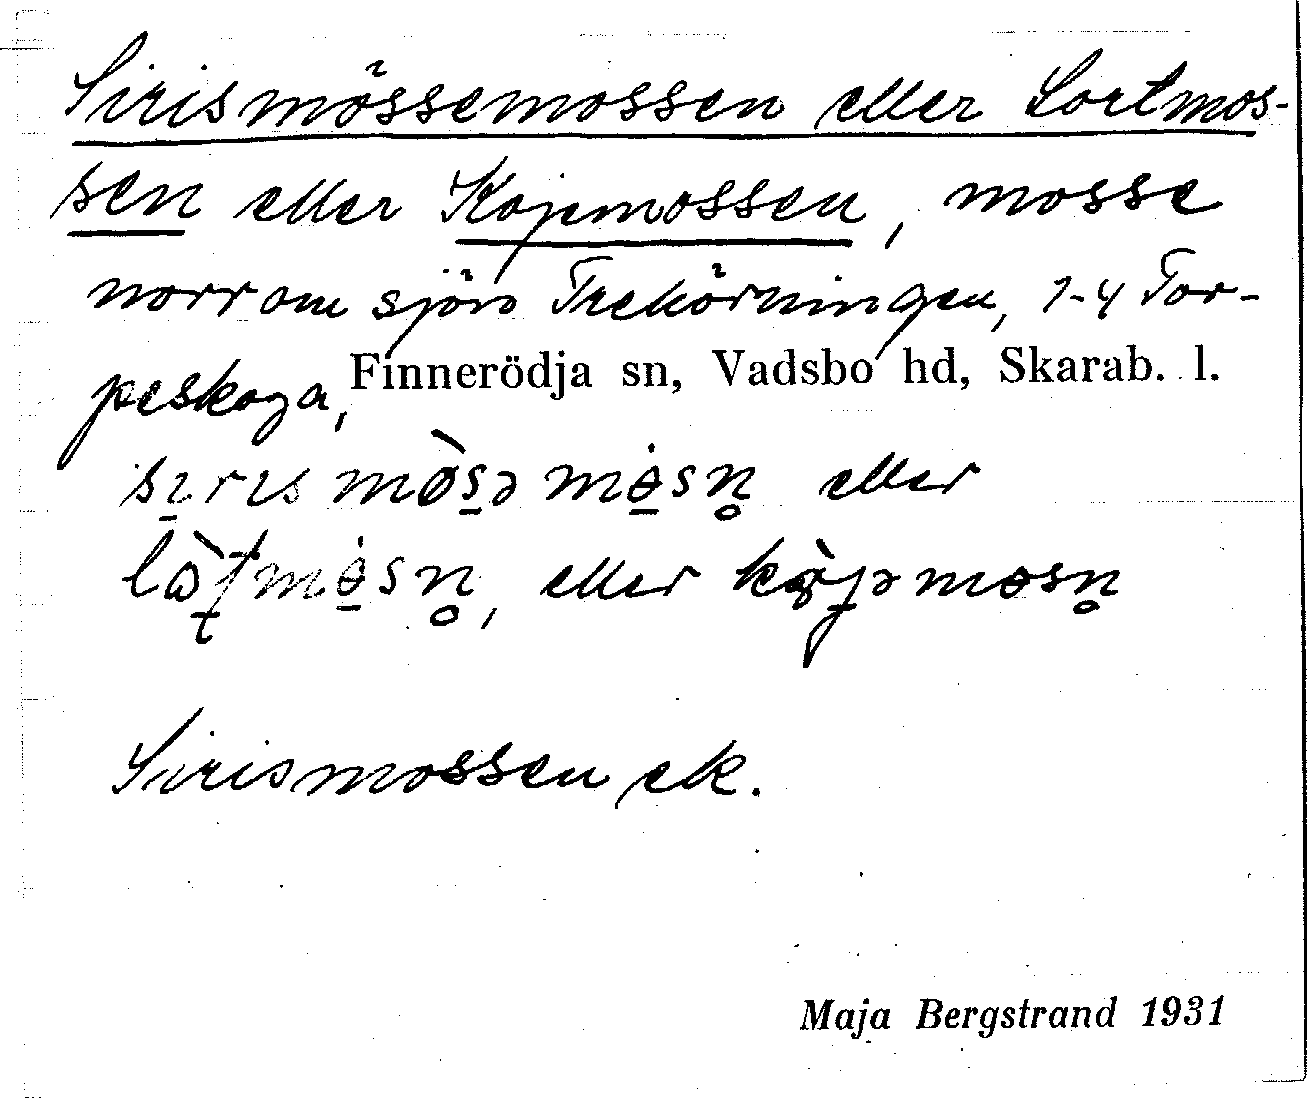 Sirismössemossen eller Lortmos-
sen eller Kojemossen, mosse
norr om sjön Trehörningen, 1-4 Tor-
peskoga, Finnerödja sn, Vadsbo hd, Skarab. l.
eller
eller
Sirismossen ek.
Maja Bergstrand 1931